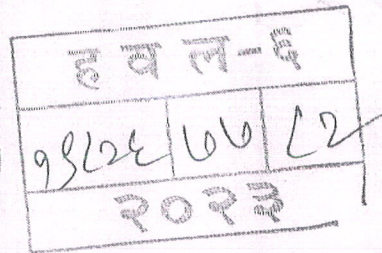 हवल-६
१९८२६ ७७ ८२
२०२३